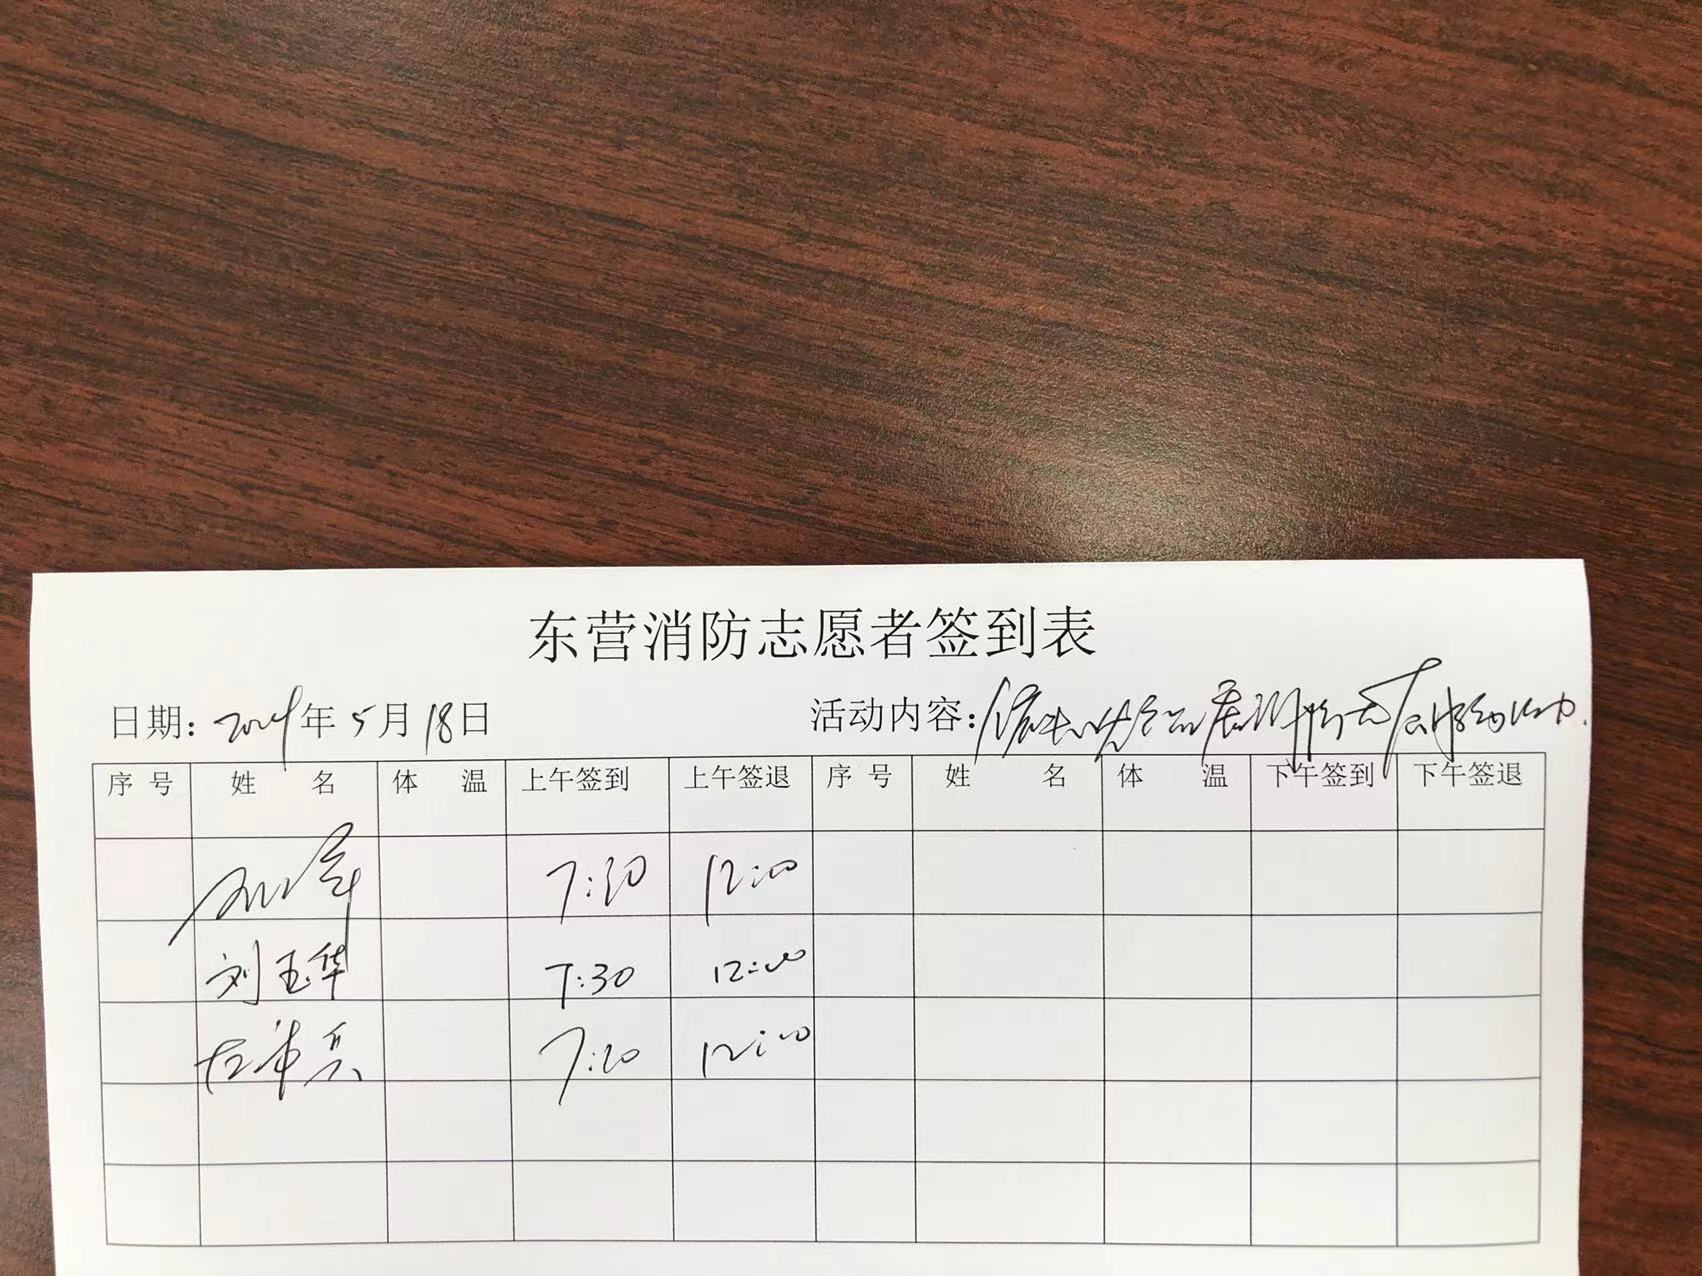 东营消防志愿者签到表
日期：2024年5月18日 活动内容：
序号 姓名 体温 上午签到 上午签退 序号 姓名 体温 下午签到 下午签退
7:30 12:00
刘玉华 7:30 12:00
7:20 12:00